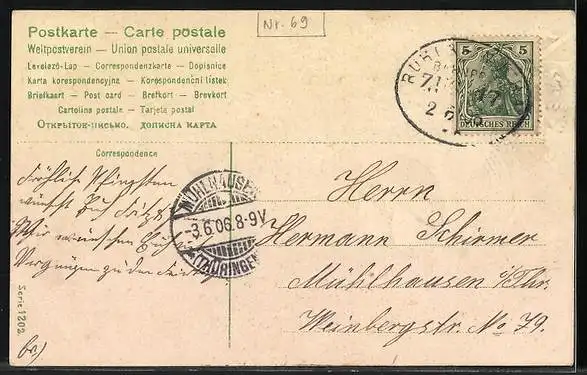 Nr. 69
Postkarte — Carte postale
Weltpostverein — Union postale universelle
Levelező-Lap — Correspondenzkarte — Dopisnice
Karta korespondencyjna — Korespondenční listek
Briefkaart — Post card — Brefkort — Brevkort
Cartolina postale — Tarjeta postal
Открытое письмо, дописна карта
5 5
DEUTSCHES REICH
Correspondence
Fröhliche Pfingsten
wünscht Euch Fritz
Wir wünschen Euch
Vergnügen zu den
MÜHLHAUSEN
-3.6.06.8-9V
(THÜRINGEN)
Herrn
Hermann Schirmer
Mühlhausen i/Thr.
Weinbergstr. No 79.
Serie 1202